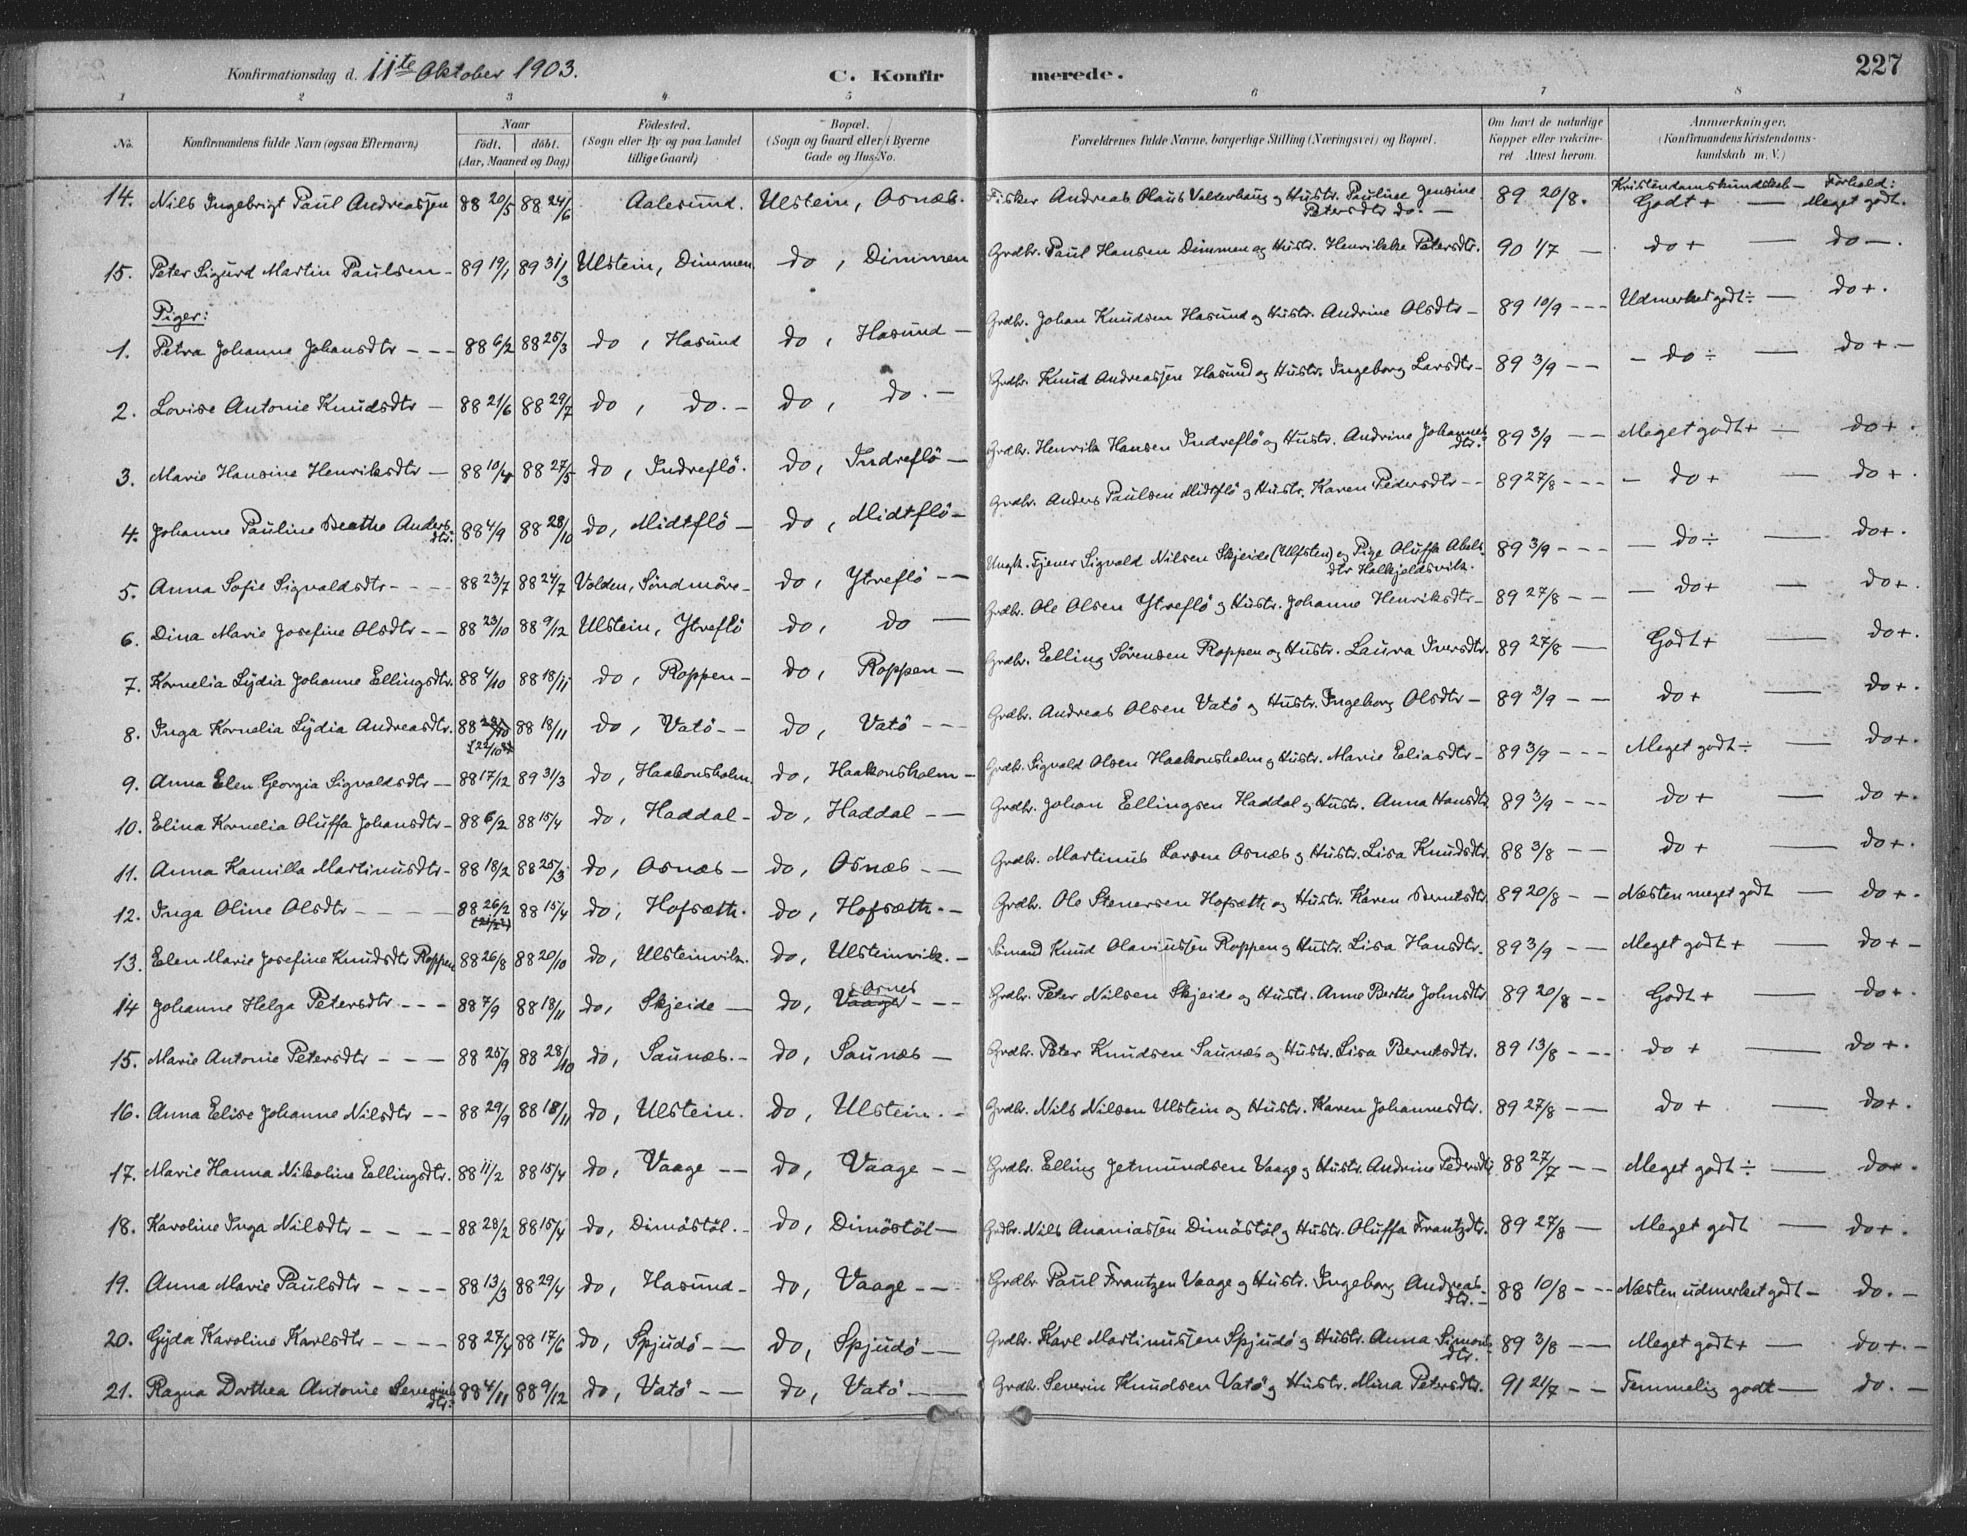 Konfirmationsdag d. 11te Oktober 1903. C. Konfirmerede. 227
1 2 3 4 5 6 7 8
No. Konfirmandens fulde Navn (ogsaa Efternavn) Naar født. døbt. (Aar, Maaned og Dag) Fødested. (Sogn eller By og paa Landet tillige Gaard) Bopæl. (Sogn og Gaard eller i Byerne Gade og Hus-No. Forældrenes fulde Navne, borgerlige Stilling (Næringsvei) og Bopæl. Om havt de naturlige Kopper eller vaccineret Attest herom. Anmærkninger, (Konfirmandens Kristendomskundskab m. V.)
Kristendomskundskab — Forhold:
14. Nils Ingebrigt Paul Andreassen 88 20/5 88 24/6 Aalesund. Ulstein, Osnæs. Fisker Andreas Olaus Valderhaug og Hustr. Pauline Jensine Petersdtr do. — 89 20/8. Godt + — Meget godt.
15. Peter Sigurd Martin Paulsen — 89 19/1 89 31/3 Ulstein, Dimmen. do, Dimmen Grdbr. Paul Hansen Dimmen og Hustr. Henrikke Petersdtr. 90 1/7 — do + — do —.
Piger:
1. Petra Johanne Johansdtr — — — 88 6/2 88 25/3 do, Hasund do, Hasund — Grdbr. Johan Knudsen Hasund og Hustr. Andrine Olsdtr — 89 10/9 — — — Udmerket godt ÷ — do +.
2. Lovise Antonie Knudsdtr — 88 21/6 88 29/7 do, do. — do, do. — Grdbr. Knud Andreassen Hasund og Hustr. Ingeborg Larsdtr — 89 3/9 — — — do ÷ — do + —
3. Marie Hansine Henriksdtr — 88 10/4 88 27/5 do, Indreflö. do, Indreflö — Grdbr. Henrik Hansen Indreflö og Hustr. Andrine Johannesdtr. 89 3/9 — — Meget godt + — do +.
4. Johanne Pauline Berthe Andersdtr. 88 4/9 88 28/10 do, Midtflö — do, Midtflö — Grdbr. Anders Paulsen Midtflö og Hustr. Karen Pedersdtr — — 89 27/8 — — — — do + — do +.
5. Anna Sofie Sigvaldsdtr — — — — 88 23/7 88 24/7 Volden, Söndmöre — do, Ytreflö — — Ungk. Tjener Sigvald Nilsen Skjeide (Ulfsten) og Pige Oluffa Abelsdtr Halkjeldsvik. 89 3/9 — — — — do ÷ — do +.
6. Dina Marie Josefine Olsdtr — — 88 23/10 88 9/12 Ulstein, Ytreflö do, do — Grdbr. Ole Olsen Ytreflö og Hustr. Johanne Henriksdtr — 89 27/8 — — — do + — do +.
7. Kornelia Lydia Johanne Ellingsdtr. 88 4/10 88 18/11 do, Roppen — do, Roppen — Grdbr. Elling Sørensen Roppen og Hustr. Laura Iversdtr. 89 27/8 — Godt + — do +.
8. Inga Kornelia Lydia Andreasdtr. 88 88 18/11 do, Vatö — — do, Vatö — — — Grdbr. Andreas Olsen Vatö og Hustr. Ingeborg Olsdtr — 89 3/9 — — do + — do +.
9. Anna Elen Georgia Sigvaldsdtr — — 88 17/12 89 31/3 do, Haakonsholm. do, Haakonsholm — Grdbr. Sigvald Olsen Haakonsholm og Hustr. Marie Eliasdtr — 89 3/9 — — — Meget godt ÷ — do +.
10. Elina Kornelia Oluffa Johansdtr — 88 6/2 88 15/4 do, Haddal — do, Haddal — — Grdbr. Johan Ellingsen Haddal og Hustr. Anna Hansdtr 89 3/9 — — — do + — do +.
11. Anna Kamilla Martinusdtr — 88 18/2 88 25/3 do, Osnæs — do, Osnæs — — Grdbr. Martinus Larsen Osnæs og Hustr. Lisa Knudsdtr. 88 3/8 — — do + — do +.
12. Inga Oline Olsdtr — — — — 88 26/2 88 15/4 do, Hofsæth. do, Hofsæth. — Grdbr. Ole Stenersen Hofsæth og Hustr. Karen Berntsdtr. 89 20/8 — — Næsten meget godt — do +.
13. Elen Marie Josefine Knudsdtr Roppen 88 26/8 88 20/10 do, Ulsteinvik. do, Ulsteinvik. — Sømand Knud Olaviussen Roppen og Hustr. Lisa Hansdtr. 89 3/9 — — Meget godt + — do + —
14 Johanne Helga Petersdtr — — — 88 7/9 88 18/11 do, Skjeide — do, Vaage Osnes — — — Grdbr. Peter Nilsen Skjeide og Hustr. Anne Berthe Johnsdtr. 89 20/8 — — Godt + — do +.
15. Marie Antonie Petersdtr — — — 88 25/9 88 28/10 do, Saunæs. — do, Saunæs — Grdbr. Peter Knudsen Saunæs og Hustr. Lisa Berntsdtr. 89 13/8 — — — do + — do +.
16. Anna Elise Johanne Nilsdtr — — 88 29/9 88 18/11 do, Ulstein. do, Ulstein. — Grdbr. Nils Nilsen Ulstein og Hustr. Karen Johannesdtr. 89 27/8 — — do + — do +.
17. Marie Hanna Nikoline Ellingsdtr. 88 11/2 88 15/4 do, Vaage — — do, Vaage — — Grdbr. Elling Jetmundsen Vaage og Hustr. Andrine Pedersdtr 88 27/7 — — Meget godt ÷ — do +.
18. Karoline Inga Nilsdtr — — — — 88 28/2 88 15/4 do, Dimöstöl. — do, Dimöstöl — Grdbr. Nils Ananiassen Dimöstöl og Hustr. Oluffa Frantzdtr. 89 27/8 — Meget godt — do +.
19. Anna Marie Paulsdtr — — — — 88 13/3 88 29/4 do, Hasund — do, Vaage — — — Grdbr. Paul Frantzen Vaage og Hustr. Ingeborg Andreasdtr. — 88 10/8 — — — Næsten udmerket godt — do. —
20. Gyda Karoline Karlsdtr — — — — 88 27/4 88 17/6 do, Spjudö — — do, Spjudö — — Grdbr. Karl Martinussen Spjudö og Hustr. Anna Simonsdtr. 89 3/8 — — Meget godt + — do +. —
21. Ragna Dorthea Antonie Severinsdtr. 88 4/11 88 9/12 do, Vatö — — do, Vatö — — Grdbr. Severin Knudsen Vatö og Hustr. Mina Petersdtr. 91 21/7 — — Temmelig godt — do. —